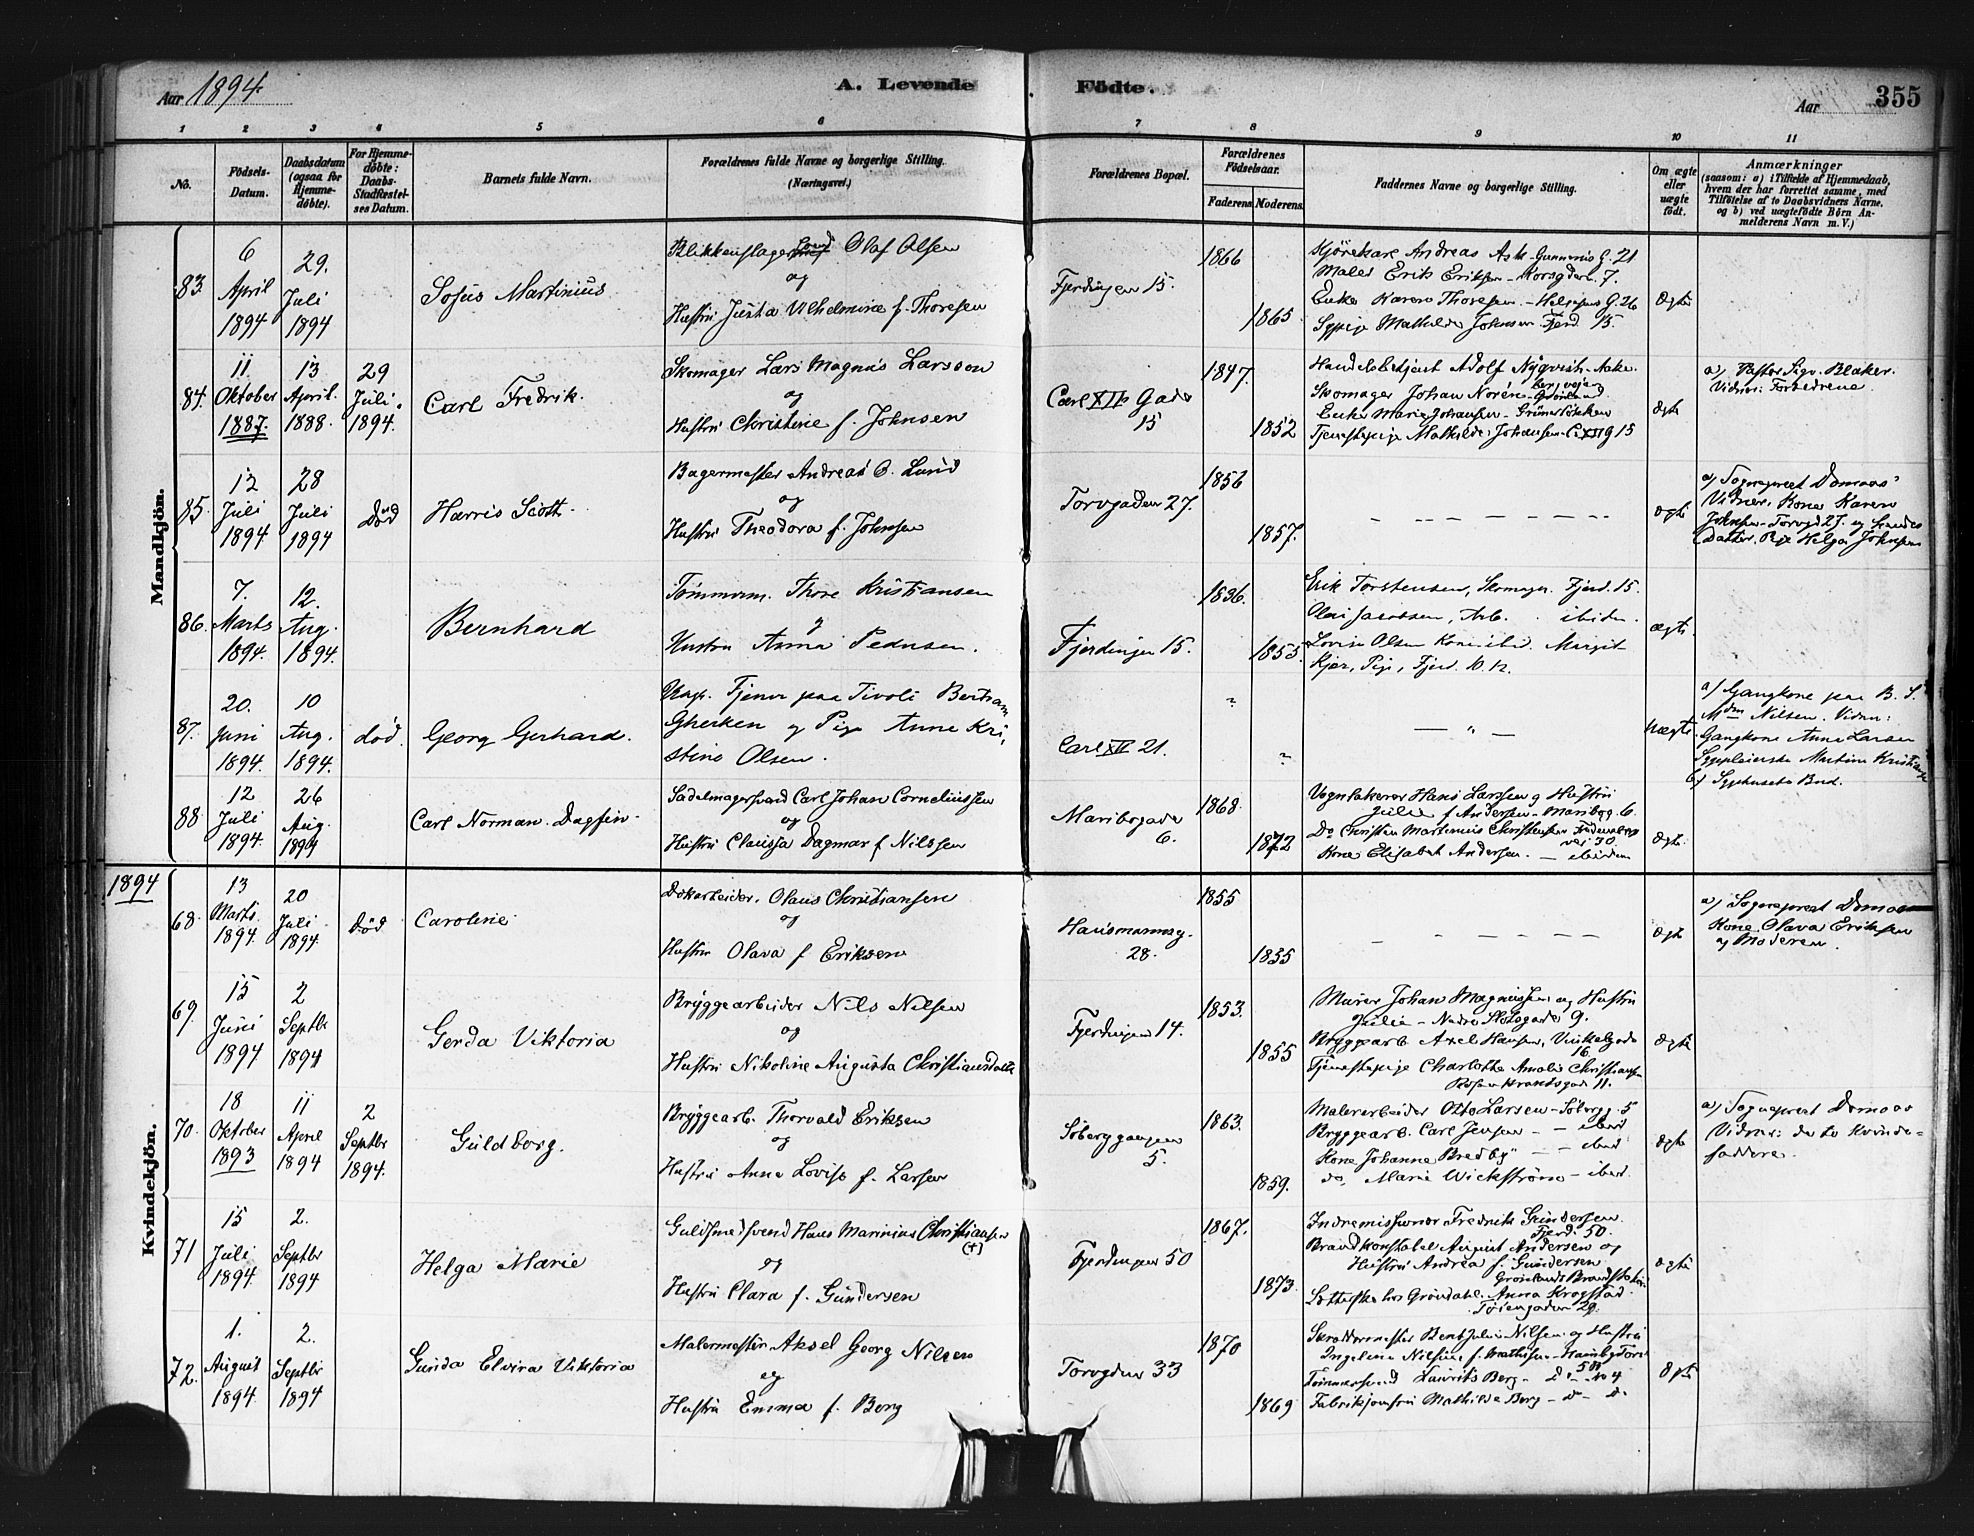 Aar 1894.
A. Levende
Födte.
Aar
355
1 2 3 4 5 6 7 8 9 10 11
No.
Födsels-
Datum.
Daabsdatum
(ogsaa for
Hjemme-
döbte).
For Hjemme-
döbte:
Daabs-
Stadfæstel-
ses Datum.
Barnets fulde Navn.
Forældrenes fulde Navne og borgerlige Stilling.
(Næringsvei.)
Forældrenes Bopæl.
Forældrenes
Födselsaar.
Faderens
Moderens.
Faddernes Navne og borgerlige Stilling.
Om ægte
eller
uægte
födt.
Anmærkninger
(saasom: a) i Tilfælde af Hjemmedaab,
hvem der har forrettet samme, med
Tilföielse af to Daabsvidners Navne.
og b) ved uægtefödte Börn An-
melderens Navn m. V.)
Mandkjön.
83.
6
April
1894
29.
Juli
1894
Sofus Martinius
Blikkenslager Olaf Olsen
og
Hustru Justa Vilhelmine f. Thoresen
Fjerdingen 15.
1866
1865
Kjörekarl Andreas Ask - Gunnerius G. 21
Maler Erik Eriksen - Korsgaden 7.
Enke Karen Thoresen - Helgesens G. 26
Sypige Mathilde Johnsen Fjerd. 15.
Ægte
84.
11
Oktober
1887.
13
April
1888.
29
Juli
1894.
Carl Fredrik.
Skomager Lars Magnus Larsson
og
Hustru Christine f. Johnsen
Carl XIIs Gade
15
1847.
1852
Handelsbetjent Adolf Nyqvist - Aake-
bergveien
Skomager Johan Norén - Grönland
Enke Marie Johansen - Grünerlökken
Tjenestepige Mathilde Johansen - C. XII G 15
Ægte
a) Pastor Sigv. Blaker.
Vidner: Forældrene.
85.
12
Juli
1894
28
Juli
1894
Död
Harris Scott
Bagermester Andreas O. Lund
og
Hustru Theodora f. Johnsen
Torvgaden 27.
1856
1857.
Ægte
a) Sogneprest Domaas
Vidner. Kone Karen
Johnsen - Torvgd 27. og hendes
Datter. Pige Helga Johnsen
86.
7.
Marts
1894.
12.
Aug.
1894.
Bernhard
Tömmerm. Thore Kristiansen
og
Hustru Anna Pedersen.
Fjerdingen 15.
1836.
1855.
Erik Torstensen, Skomager. Fjerd. 15.
Olai Jacobsen, Arb. ibidem.
Lovise Olsen Kone ibid. Margit
Kjær, Pige, Fjerd. 10. 12.
ægte.
87.
20.
Juni
1894.
10
Aug.
1894.
död.
Georg Gerhard.
Ugg. Tjener paa Tivoli Bertram
Gherken og Pige Anne Kri-
stine Olsen.
Carl XII 21.
?
?
— " —
Uægte
a) Gangkone paa B. S.
Mdm Nilsen. Vidner:
Gangkone Anna Larsen
Sygepleierske Martina Kristiansen
b) Sygehusets Bud.
88
12
Juli
1894.
26
Aug.
1894
Carl Norman Dagfin.
Sadelmagersvend Carl Johan Corneliussen
og
Hustru Claussa Dagmar f Nilssen
Maribogade
6.
1868.
1872
Vognlakerer Hans Larssen og Hustru
Julie f Andersen - Maribog. 6.
Do Christen Martinius Christensen Fredensborg-
vei 30.
Kone Elisabet Andersen. - ibidem
Ægte.
1894
Kvindekjön.
68.
13
Marts
1894.
20
Juli
1894.
Död
Caroline
Dokarbeider. Olaus Christiansen
og
Hustru Olava f Eriksen
Hausmannsg.
28.
1855
1855
Ægte
a) Sogneprest Domaas
Kone Olava Eriksen
og Moderen.
69.
15
Juni
1894
2
Septbr
1894
Gerda Viktoria
Bryggearbeider Nils Nilsen
og
Hustru Nikoline Augusta Christiansdatter
Fjerdingen 14.
1853.
1855
Murer Johan Magnussen og Hustru
Julie - Nedre Slotsgade 9.
Bryggearb. Axel Hansen, Vinkelgade
16.
Tjenestepige Charlotte Amalie Christiansen
Rosenkrandsgad 11.
Ægte
70.
18
Oktober
1893
11
April
1894
2
Septbr
1894.
Guldborg.
Bryggearb. Thorvald Eriksen
og
Hustru Anna Lovise f. Larsen
Söberggangen
5.
1863.
1859.
Malerarbeider Otto Larsen - Söbergg. 5
Bryggearb. Carl Jensen - - ibid
Kone Johanne Bredby - - ibid
do. Marie Wickström - ibid.
Ægte
a) Sogneprest Domaas
Vidner: de to kvinde-
faddere.
71
15
Juli
1894.
2.
Septbr
1894
Helga Marie
Guldsmedsvend Hans Marinius Christiansen
(+)
og
Hustru Clara f. Gundersen
Fjerdingen 50
1867.
1873.
Indremissionær Fredrik Gundersen
Fjerd. 50.
Brandkonstabel August Andersen og
Hustru Andrea f. Gundersen
Grönlands Brandstation
hos Gröndahl. Anna Krogstad.
Töiengaden 29.
Ægte
72.
1.
August
1894.
2.
Septbr
1894
Gunda Elvira Viktoria
Malermester Aksel Georg Nilsen
og
Hustru Emma f. Berg
Torvgden 33
1870
1869
Skræddermester Bent Julius Nilsen og Hustru
Ingeline Nilsine f. Mathisen - Hambg Torv
Tömmersvend Laurits Berg - do - No 4
Fabrikjomfru Mathilde Berg - do - do
Ægte